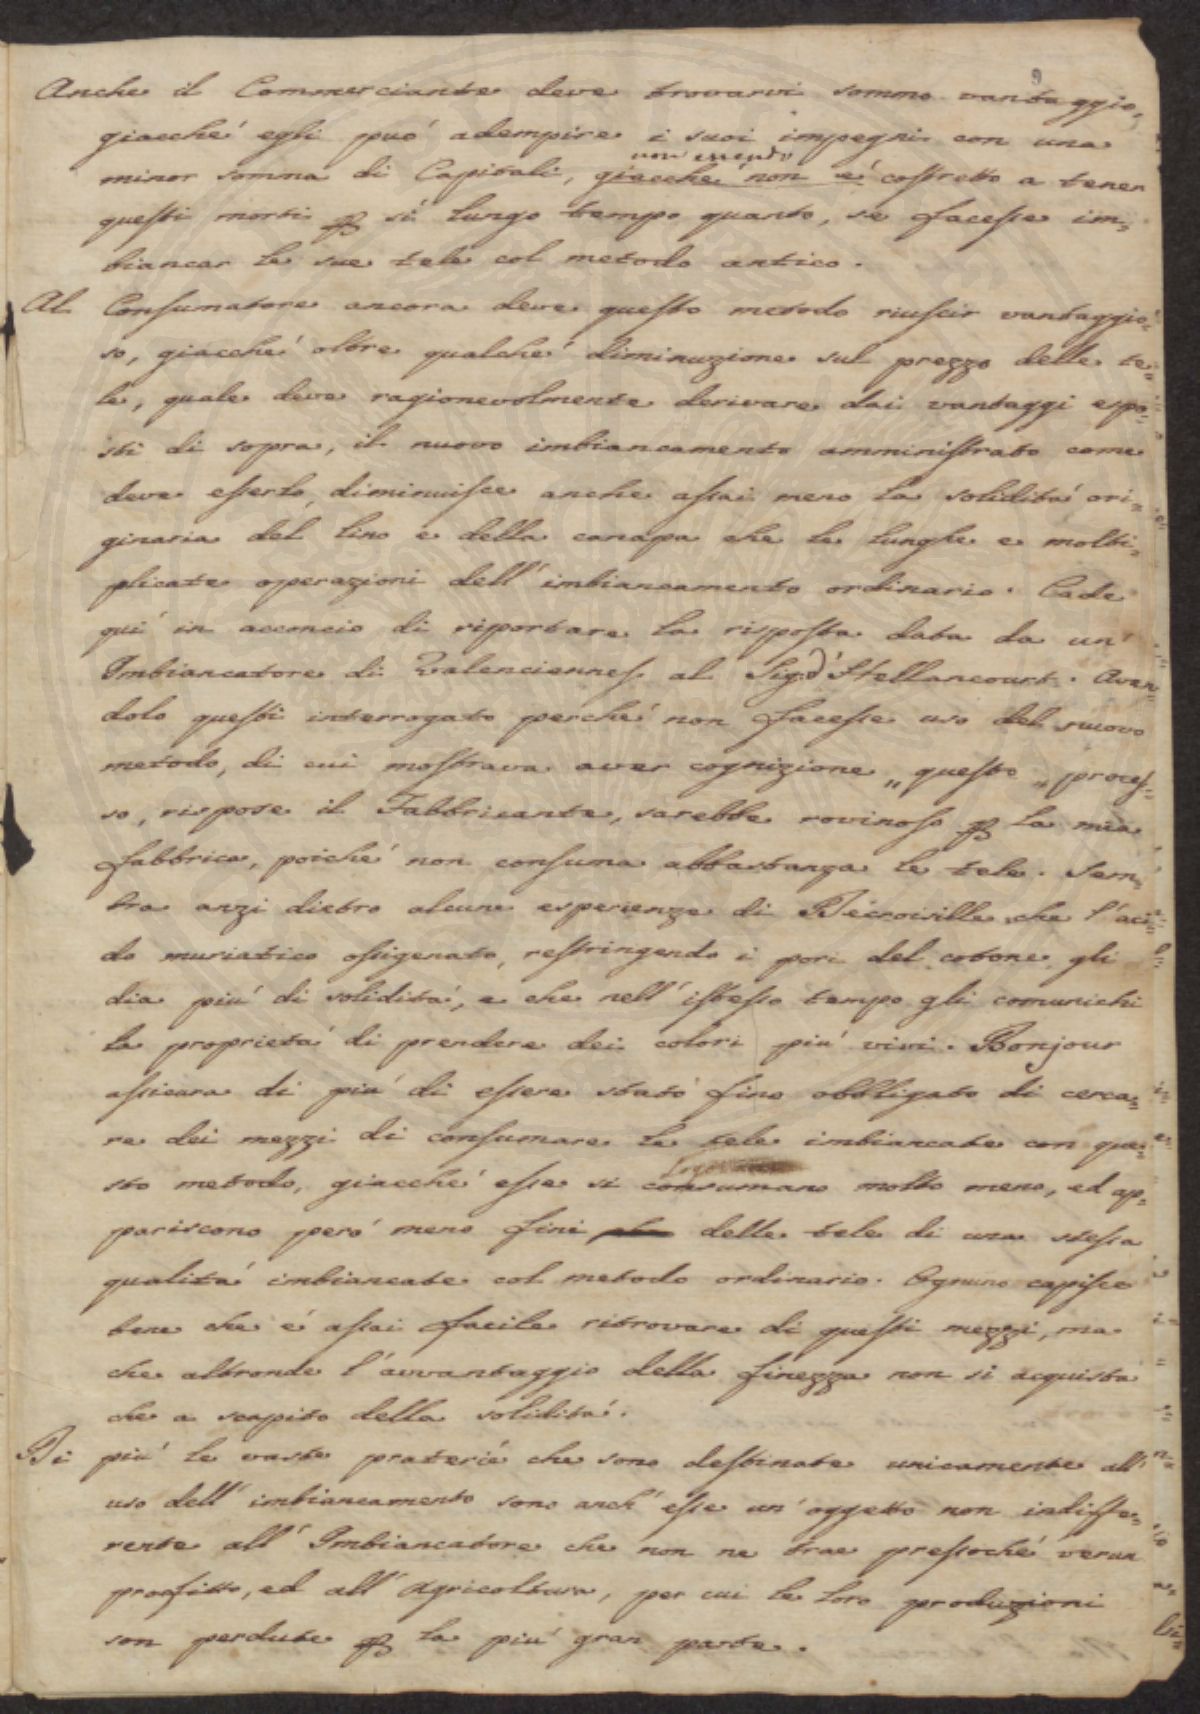 9
Anche il Commerciante deve trovarvi sommo vantaggio,
giacché egli può adempire i suoi impegni con una
non essendo
minor somma di Capitali, giacche non é costretto a tener
questi morti p sì lungo tempo quanto, se facesse im=
biancar le sue tele col metodo antico.
Al Consumatore ancora deve questo metodo riuscir vantaggio=
so, giacché oltre qualche diminuzione sul prezzo delle te=
le, quale deve ragionevolmente derivare dai vantaggi espo=
sti di sopra, il nuovo imbiancamento amministrato come
deve esserlo, diminuisce anche assai meno la solidità ori=
ginaria del lino e della canapa che le lunghe e molti=
plicate operazioni dell'imbiancamento ordinario. Cade
quì in acconcio di riportare la risposta data da un
Imbiancatore di Valenciennes al Sig. d'Hellancourt. Aven=
dolo questi interrogato perché non facesse uso del nuovo
metodo, di cui mostrava aver cognizione „ questo „ proces=
so, rispose il Fabbricante, sarebbe rovinoso p la mia
fabbrica, poiché non consuma abbastanza le tele. Sem=
bra anzi dietro alcune esperienze di Décroisille che l'aci=
do muriatico ossigenato, restringendo i pori del cotone gli
dia più di solidità, e che nell'istesso tempo gli comunichi
la proprietà di prendere dei colori più vivi. Bonjour
assicura di più di essere stato fino obbligato di cerca=
re dei mezzi di consumare le tele imbiancate con que=
sto metodo, giacché esse si consumano molto meno, ed ap=
pariscono però meno fini delle tele di una stessa
qualità imbiancate col metodo ordinario. Ognuno capisce
bene che é assai facile ritrovare di questi mezzi, ma
che altronde l'avvantaggio della finezza non si acquista
che a scapito della solidità.
Di più le vaste praterie che sono destinate unicamente all'
uso dell'imbiancamento sono anch'esse un'oggetto non indiffe=
rente all'Imbiancatore che non ne trae pressoché verun
profitto, ed all'Agricoltura, per cui le loro produzioni
son perdute p la più gran parte.